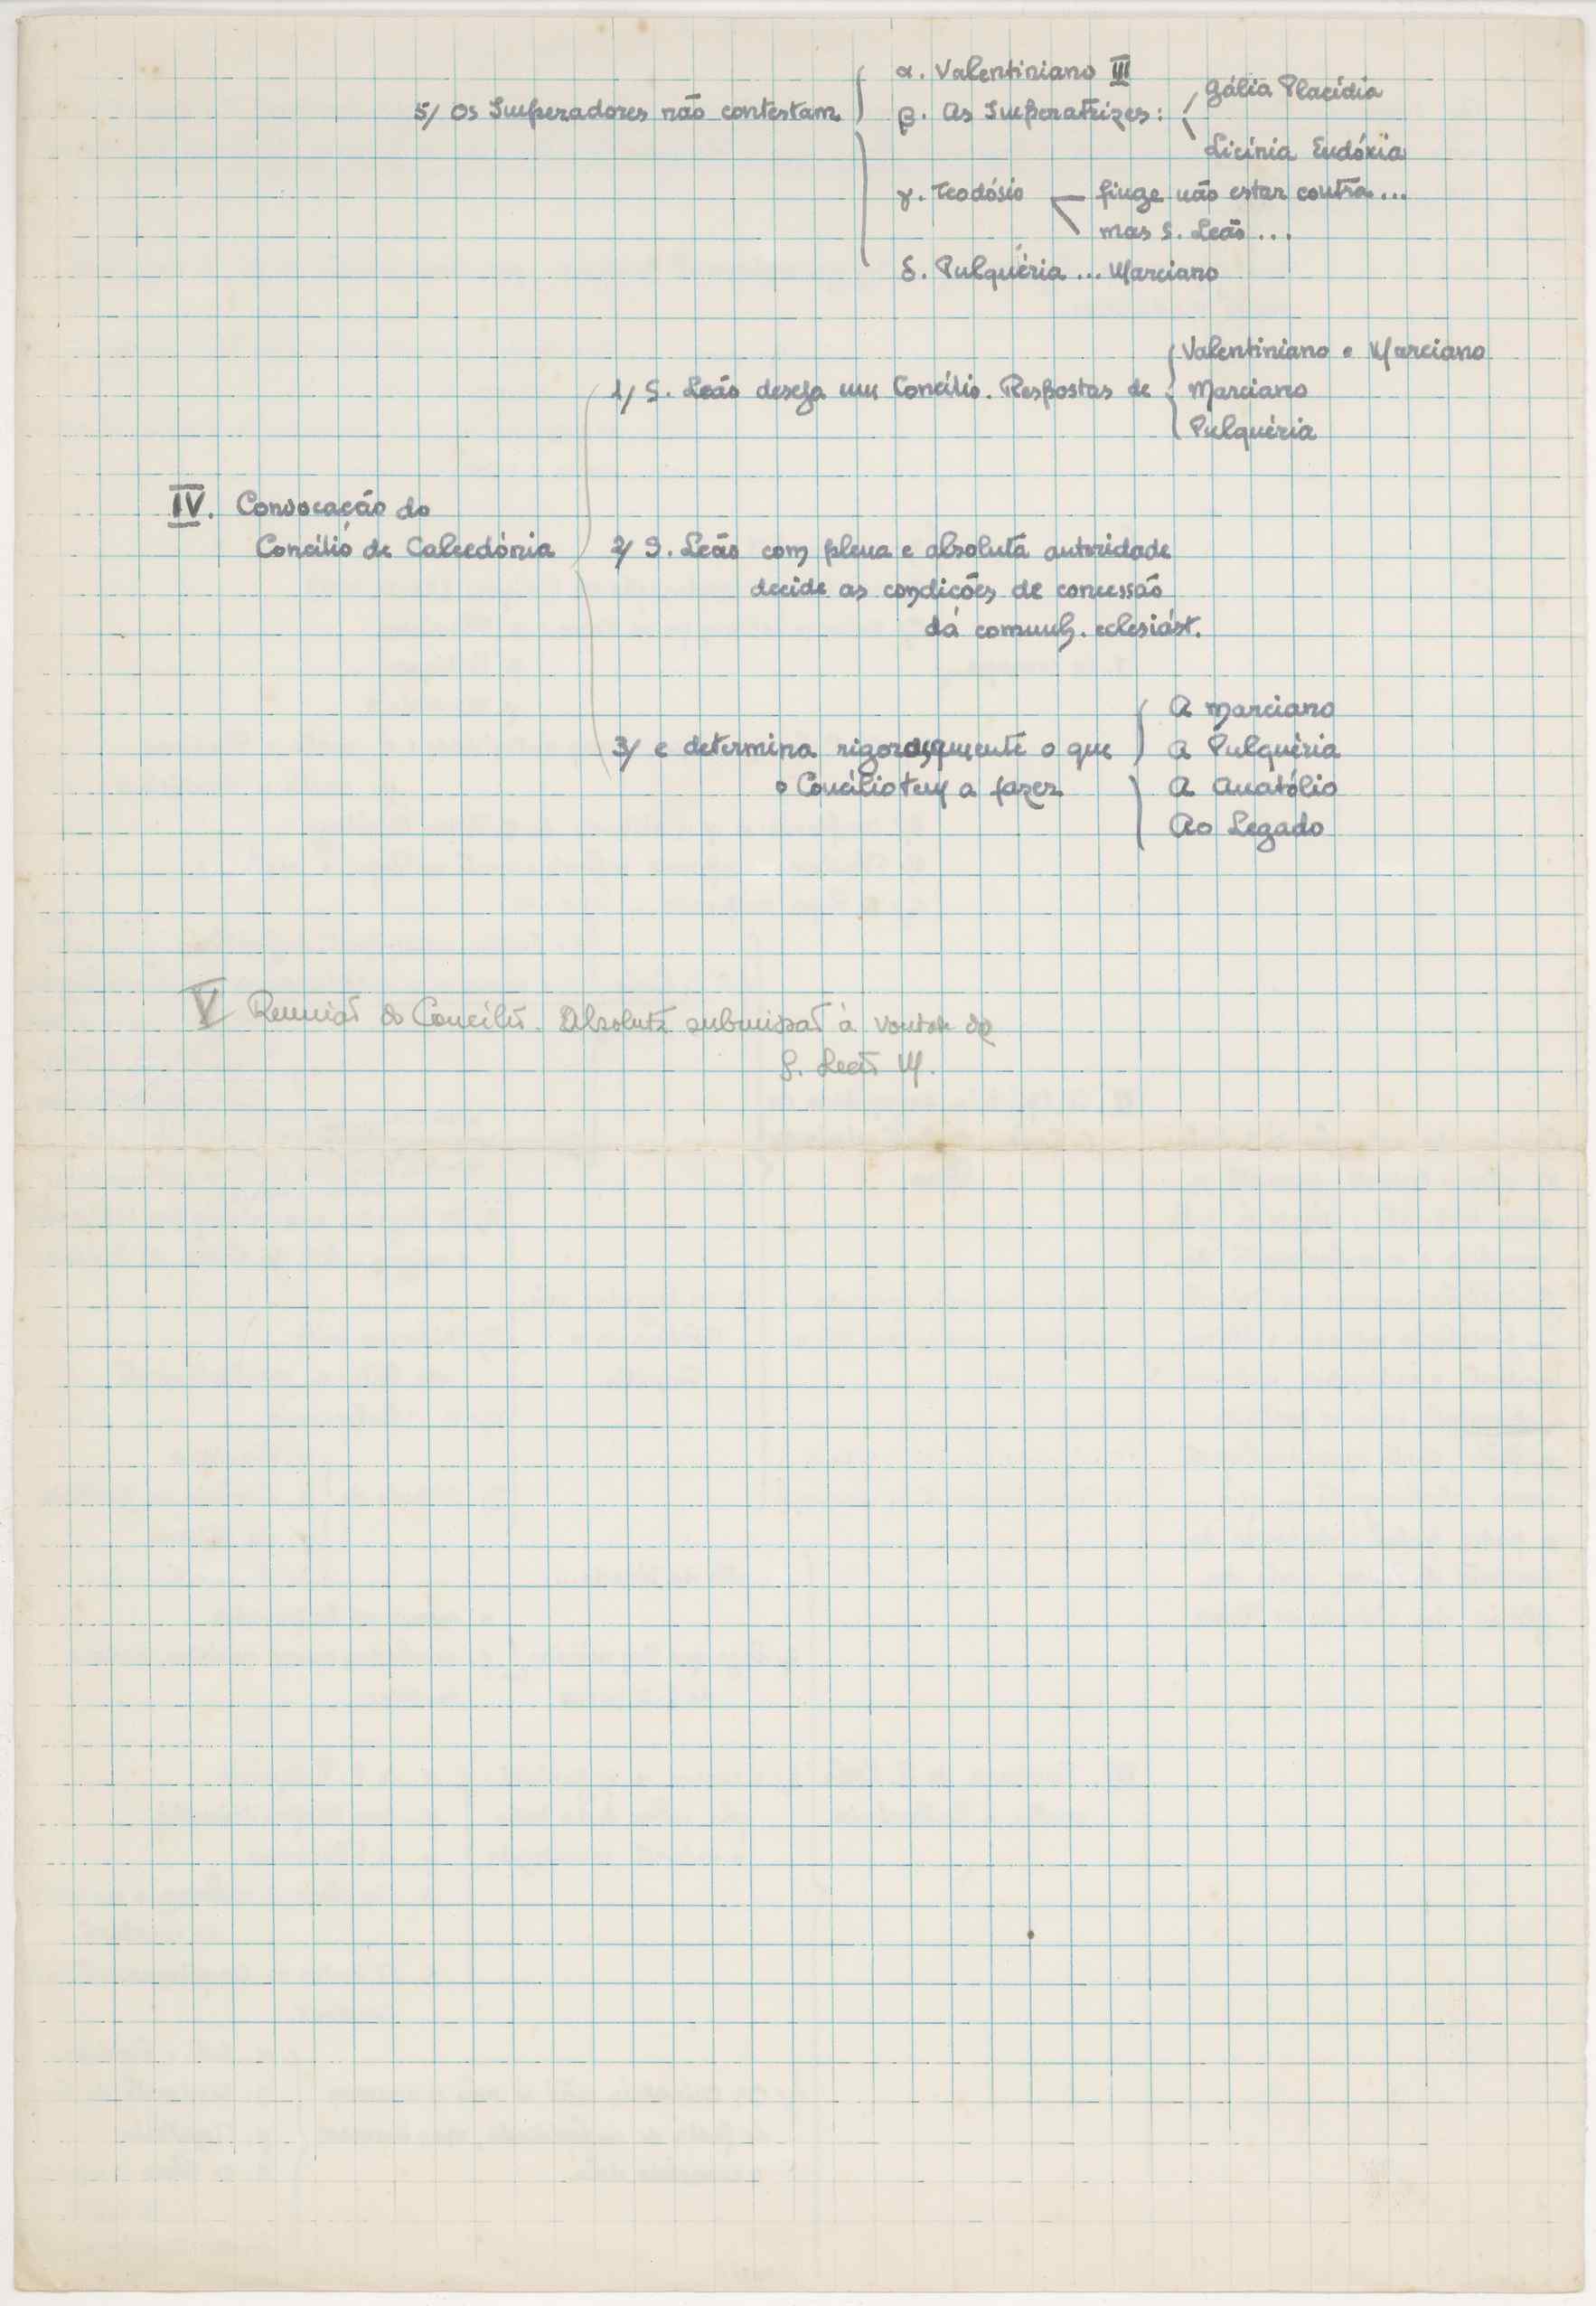 α. Valentiniano III
5/ Os Imperadores não contestam
β. As Imperatrizes:
Gália Placídia
Licínia Eudóxia
γ. Teodósio
finge não estar contra...
mas S. Leão...
δ. Pulquéria... Marciano
1/ S. Leão deseja um Concílio. Respostas de
Valentiniano e Marciano
Marciano
Pulquéria
IV. Convocação do
Concílio de Calcedónia
2/ S. Leão com plena e absoluta autoridade
decide as condições de concessão
da comunh. eclesiást.
3/ e determina rigorosamente o que
o Concílio tem a fazer
A Marciano
A Pulquéria
A Anatólio
Ao Legado
V Reunião do Concílio. Absoluta submissão à vontade de
S. Leão M.